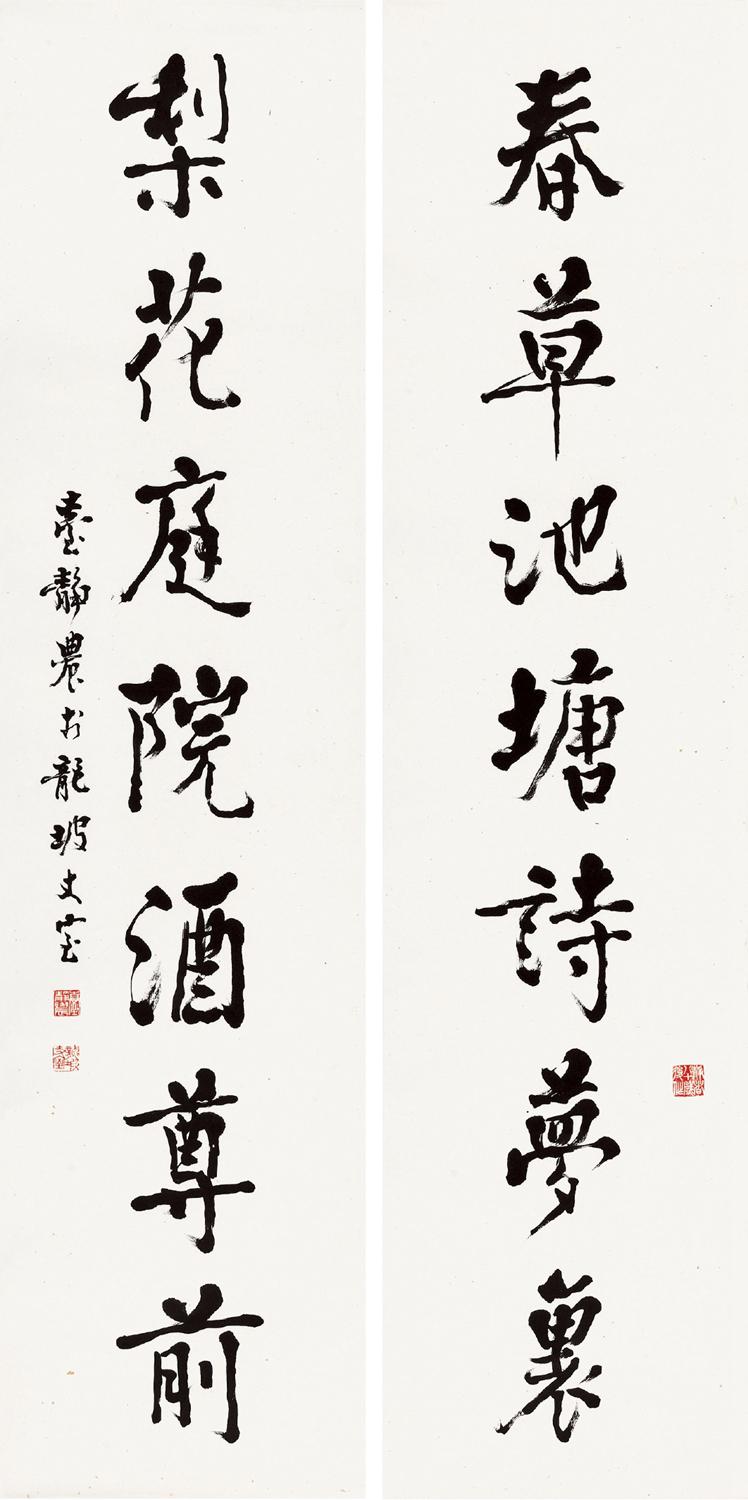 春草池塘詩夢裏
梨花庭院酒尊前
臺靜農於龍坡丈室